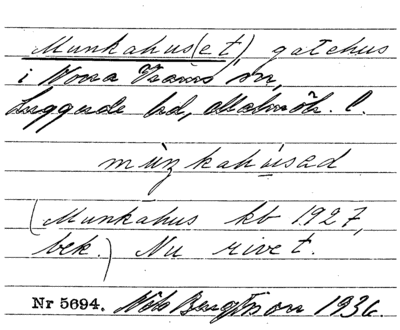 Munkahus(et), gatehus
i Norra Vrams sn,
Luggude hd, Malmöh. l.
múzkahúsad
(Munkahus kb 1927,
bek.) Nu rivet.
Nr 5694. Nils Bengtsson 1936.